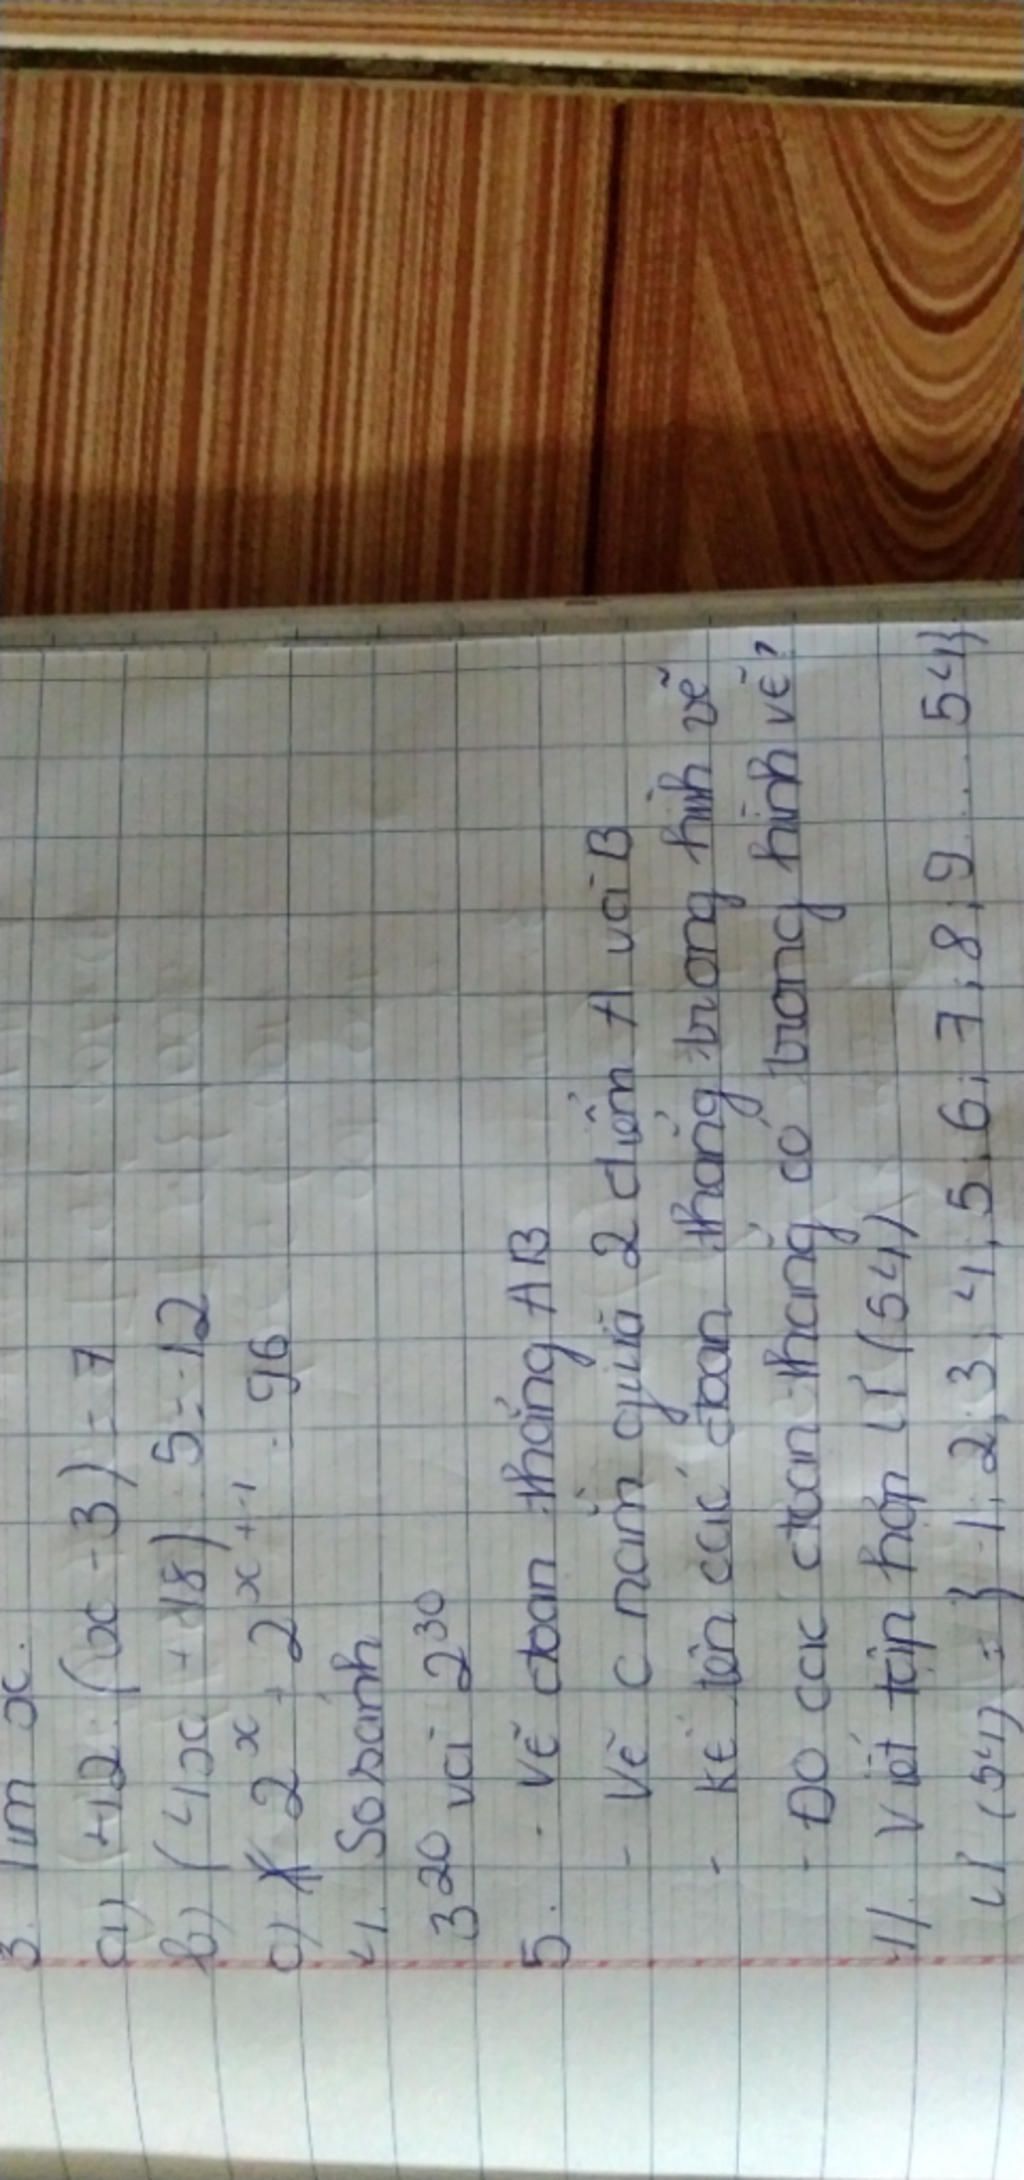 3. Tìm x.
a) 42 : (x - 3) = 7
b) (4x + 18) : 5 = 12
c) 2^x + 2^x+1 = 96
4. So sánh
3^20 và 2^30
5. - Vẽ đoạn thẳng AB
- Vẽ C nằm giữa 2 điểm A và B
- Kể tên các đoạn thẳng trong hình vẽ
- Đo các đoạn thẳng có trong hình vẽ?
1/. Viết tập hợp Ư(54)
Ư(54) = } 1; 2; 3; 4; 5; 6; 7; 8; 9... 54}